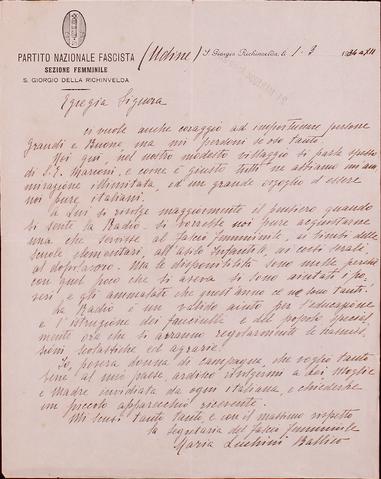 PARTITO NAZIONALE FASCISTA
SEZIONE FEMMINILE
S. GIORGIO DELLA RICHINVELDA
(Udine) S. Giorgio Richinvelda, li 1-3 1934 a XII
Egregia Signora
ci vuole anche coraggio ad importunare persone
Grandi e Buone, ma mi perdoni se oso tanto.
Noi qui, nel nostro modesto villaggio si parla spesso
di S.E. Marconi, e come è giusto tutti ne abbiamo un'am
mirazione illimitata, ed un grande orgoglio d'essere
noi pure italiani.
A Lui si rivolge maggiormente il pensiero quando
si sente la Radio. Si vorrebbe noi pure acquistarne
una che servisse al fascio femminile, ai bimbi delle
scuole elementari, all'asilo infantile, ai corsi serali
al dopolavoro. Ma le disponibilità sono nulle perchè
con quel poco che si aveva si sono aiutati i po
veri, e gli ammalati che quest'anno ce ne sono tanti.
La Radio è un valido aiuto per l'educazione
e l'istruzione dei fanciulli e del popolo special
mente ora che si avranno regolarmente le trasmis
sioni scolastiche ed agrarie.
Io, povera donna di campagna che voglio tanto
bene al mio paese, ardisco rivolgermi a Lei Moglie
e Madre invidiata da ogni italiana, e chiederle
un piccolo apparecchio ricevente.
Mi scusi tanto tanto e con il massimo rispetto
la segretaria del fascio femminile
Maria Luchini